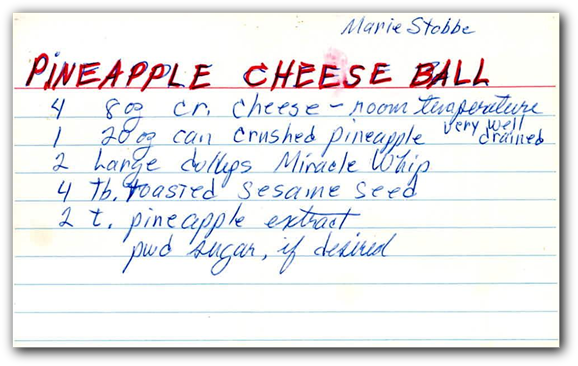 Marie Stobbe
PINEAPPLE CHEESE BALL
4 8 og cr. cheese - room temperature
1 20 og can crushed pineapple very well drained
2 Large dollups Miracle Whip
4 Tb. toasted sesame seed
2 t. pineapple extract
pwd sugar, if desired